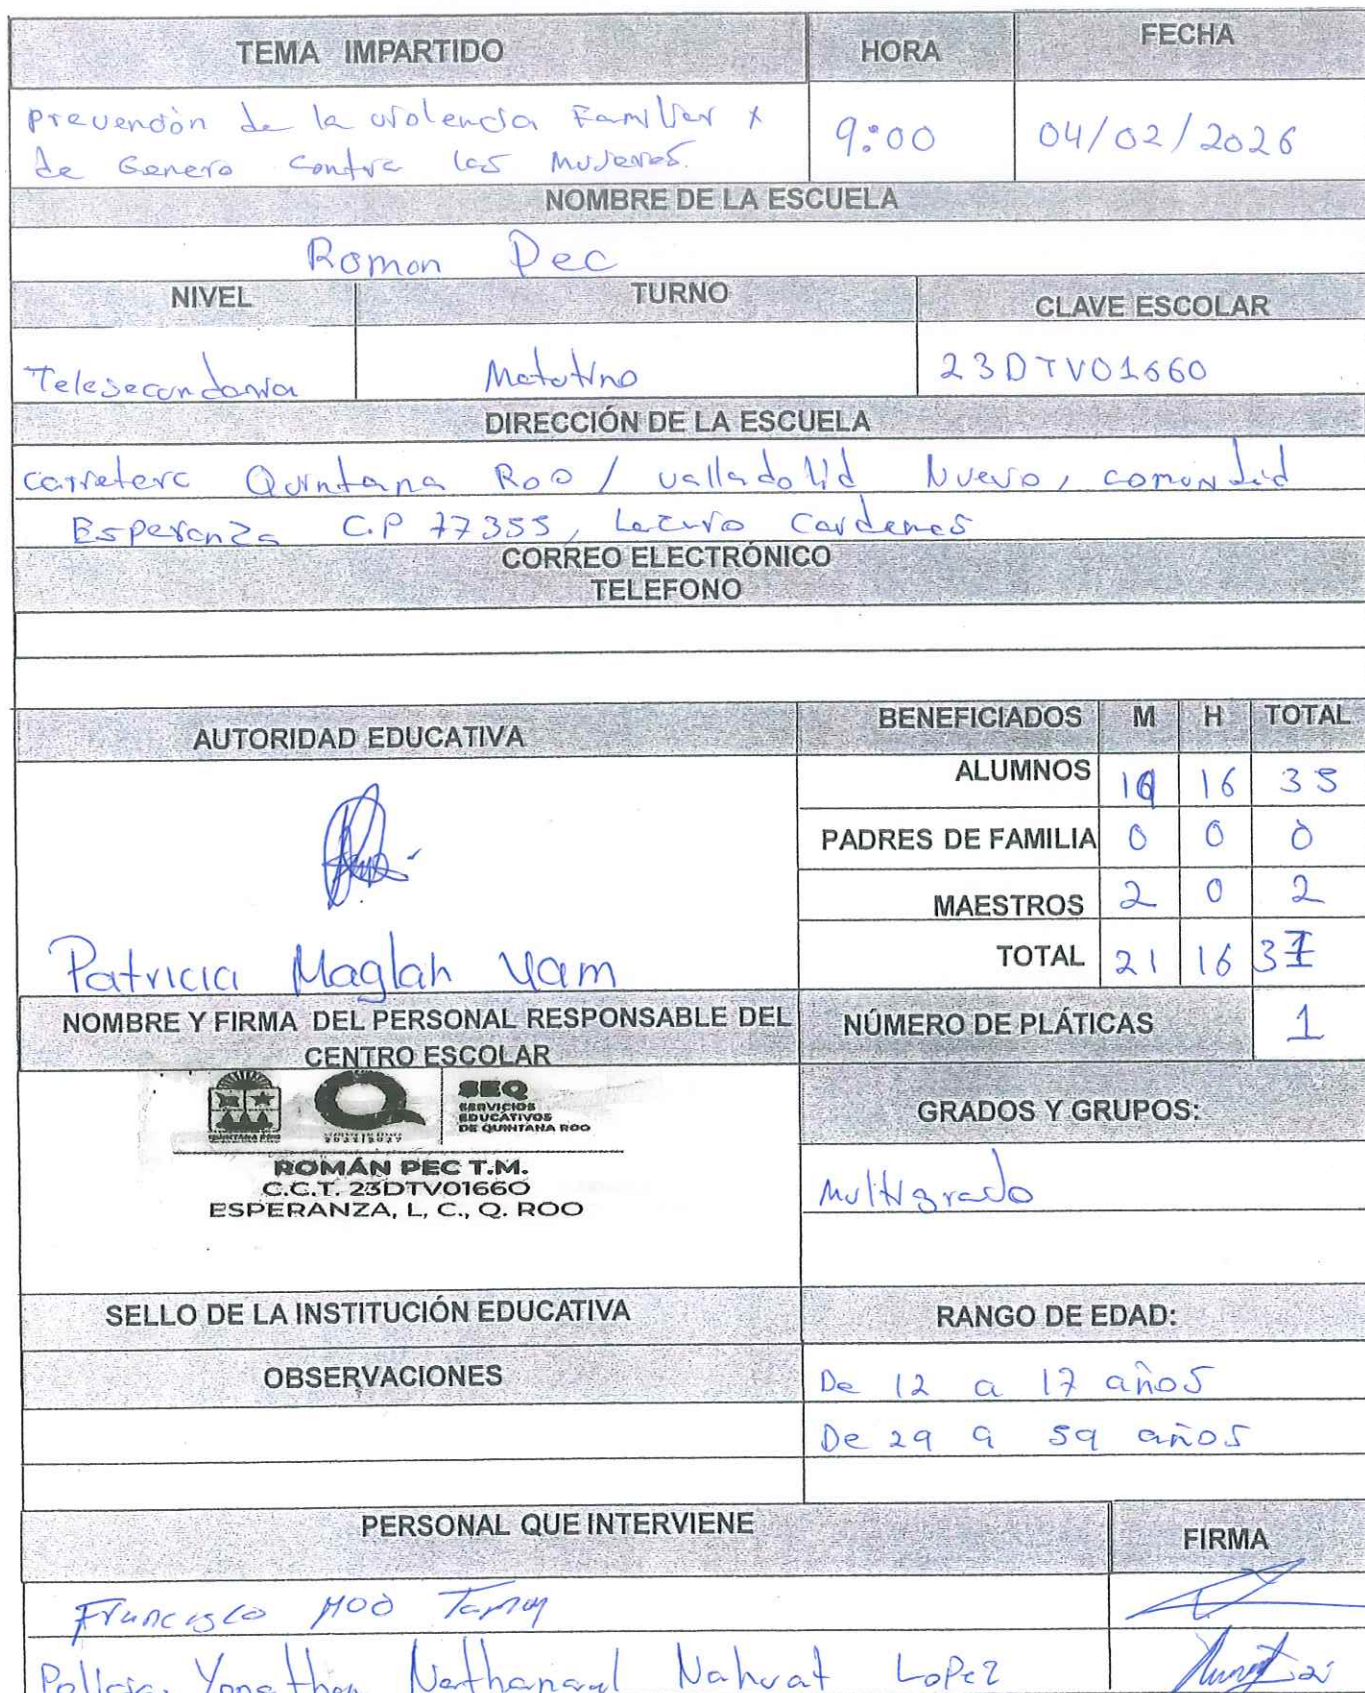 TEMA IMPARTIDO HORA FECHA
prevención de la violencia Familiar y
de Genero contra las Mujeres. 9:00 04/02/2026
NOMBRE DE LA ESCUELA
Roman Pec
NIVEL TURNO CLAVE ESCOLAR
Telesecundaria Matutino 23DTV0166O
DIRECCIÓN DE LA ESCUELA
carretera Quintana Roo / valladolid Nuevo, comunidad
Esperanza C.P 77355, Lazaro Cardenas
CORREO ELECTRÓNICO
TELEFONO
AUTORIDAD EDUCATIVA BENEFICIADOS M H TOTAL
ALUMNOS 19 16 35
PADRES DE FAMILIA 0 0 0
MAESTROS 2 0 2
Patricia Maglah Yam TOTAL 21 16 37
NOMBRE Y FIRMA DEL PERSONAL RESPONSABLE DEL
CENTRO ESCOLAR
NÚMERO DE PLÁTICAS 1
QUINTANA ROO
SEQ
SERVICIOS
EDUCATIVOS
DE QUINTANA ROO
ROMÁN PEC T.M.
C.C.T. 23DTV0166O
ESPERANZA, L, C., Q. ROO
GRADOS Y GRUPOS:
Multigrado
SELLO DE LA INSTITUCIÓN EDUCATIVA RANGO DE EDAD:
OBSERVACIONES De 12 a 17 años
De 29 a 59 años
PERSONAL QUE INTERVIENE FIRMA
Francisco Moo
Policia. Yonathan Nathanael Nahuat Lopez